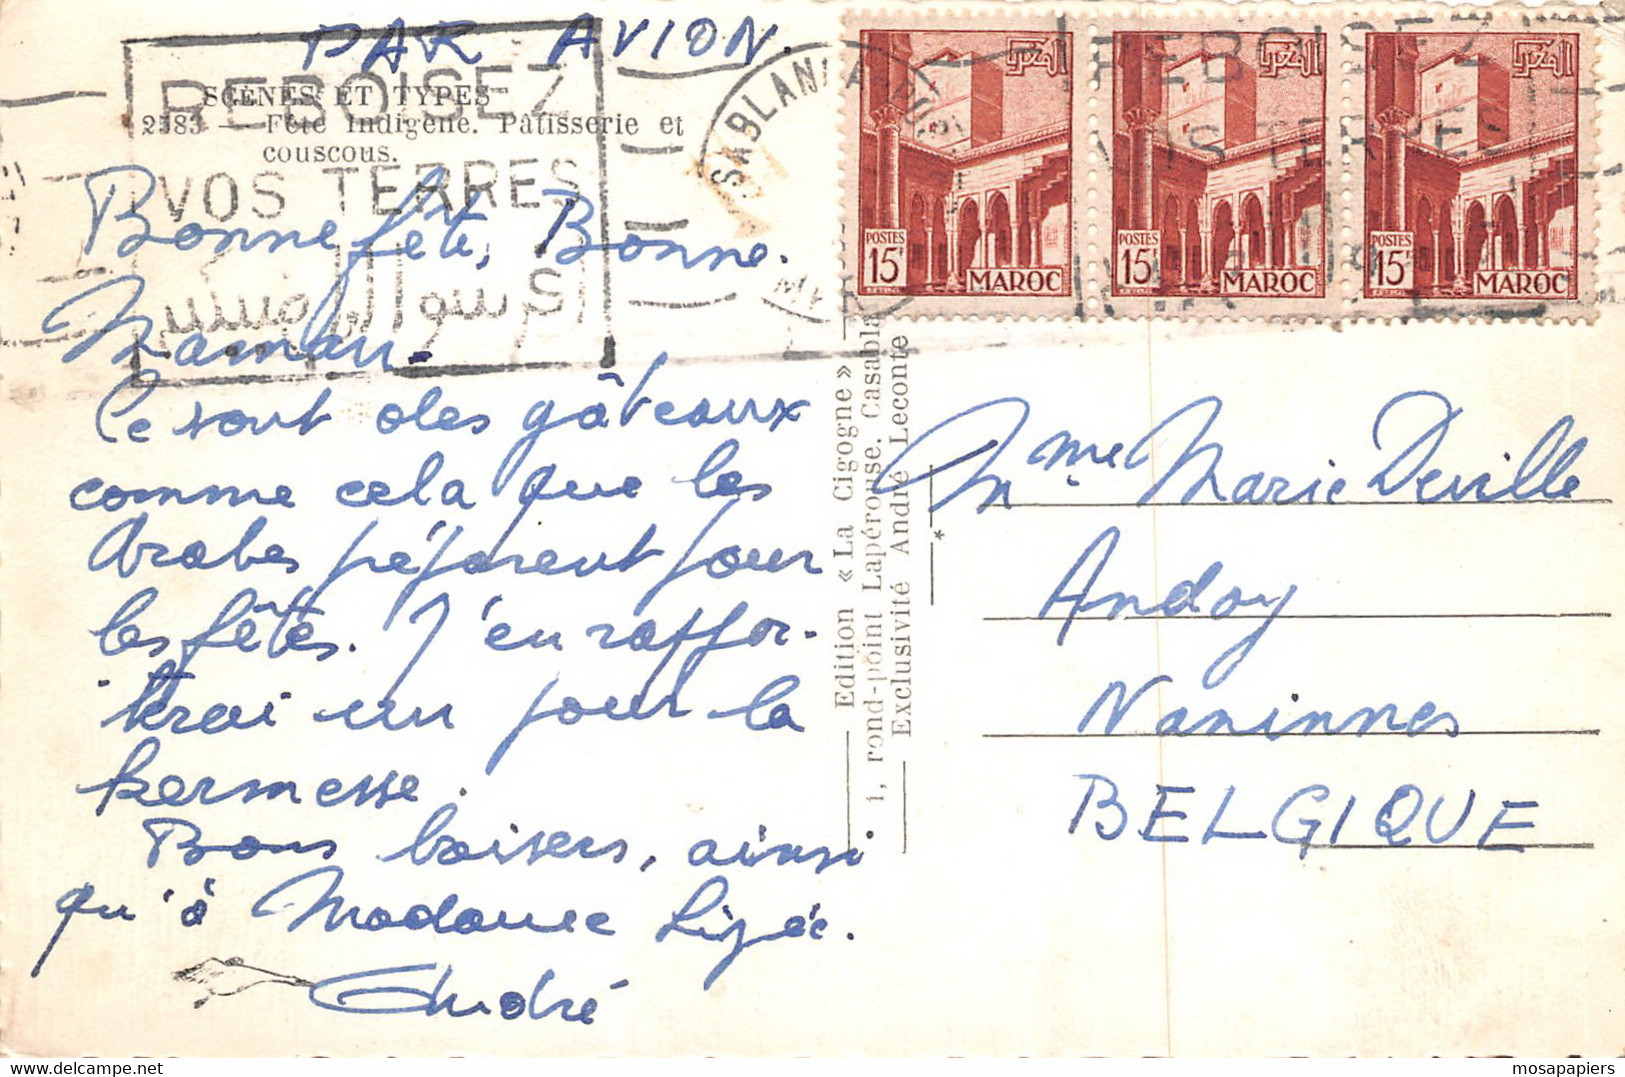 PAR AVION.
SCÈNES ET TYPES
2383 — Fête Indigène. Pâtisserie et
couscous.
REBOISEZ
VOS TERRES
CASABLANCA
Bonne fête, Bonne
Maman.
Ce sont des gâteaux
comme cela que les
Arabes préparent pour
les fêtes. J'en rappor-
terai un pour la
kermesse.
Bons baisers, ainsi
qu'à Madame Lizée.
André
Edition « La Cigogne »
1, rond-point Lapérouse, Casabla
Exclusivité André Leconte
*
المغرب
POSTES
15F
MAROC
المغرب
POSTES
15F
MAROC
المغرب
POSTES
15F
MAROC
REBOISEZ
VOS TERRES
Mme Marie Deville
Andoy
Naninnes
BELGIQUE
mosapapiers